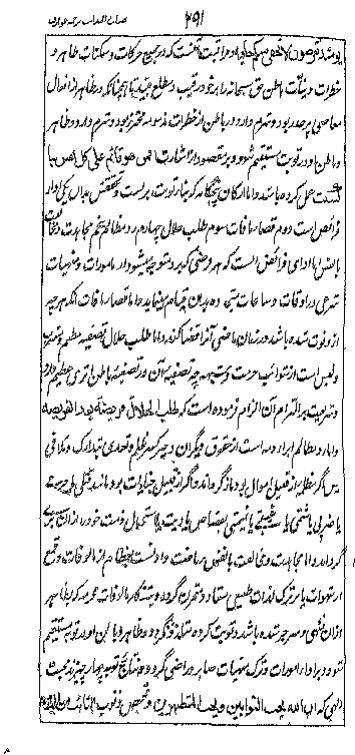 ۲۹۱
یومئذ تعرضون لا تخفی منکم خافیة و مراقبت آنست که در جمیع حرکات و سکنات ظاهر و
خطرات و نیّات باطن حق سبحانه را بر خود رقیب و مطلع بیند تا همچنانکه در ظاهر از افعال
معاصی بر حذر بود و شرم دارد در باطن از خطرات مذمومه محترز بود و شرم دارد و ظاهر
و باطن او در توبت مستقیم شود و بر مقتضای اشارت افمن هو قائم علی کل نفس بما
کسبت عمل کرده باشد و اما ارکان پنجگانه که بنای توبت بر آنست و تحققش بدان یکی ادای
فرائض است دوم قضای مافات سوم طلب حلال چهارم رد مظالم پنجم مجاهدت و مخالفت
با نفس اما ادای فرائض آنست که هر فرضی که بر او متوجه میشود از مامورات و منهیات
شرعی در اوقات و ساعات بدان قیام نماید و اما قضای مافات آنکه هرچه
از او فوت شده باشد در زمان ماضی آنرا قضا کند و اما طلب حلال تصفیه مطعم و مشرب
و ملبس است از شوائب حرمت و شبهه چه تصفیه آن در تصفیه باطن اثری عظیم دارد
و شریعت بر التزام آن الزام نموده است که طلب الحلال فریضة بعد الفریضه
و اما رد مظالم ابراء ذمه است از حقوق دیگران و هر که بر ظلم و تعدی تدارک و تلافی
پس اگر مظلمه از قبیل اموال بود باز گرداند و اگر از قبیل جنایات بود مانند قتلی یا جرحی
یا ضربی یا شتمی یا غیبتی یا تهمتی بقصاص یا دیت یا استحلال ذمت خود را از آن بری
گرداند و اما مجاهدت و مخالفت با نفس ریاضت دادنست و فطام از مالوفات و قمع
از شهوات تا بر ترک لذات طبیعی معتاد و متمرن گردد و متنکر مالوفات محرمه که بظاهر
از آن منتهی و منزجر شده باشد و توبت کرده متلذذ نگردد و ظاهر و باطن او در توبه مستقیم
شود و بر ادای مامورات و ترک منهیات صابر و راضی گردد و نتایج توبه چهار چیز است محبت
الهی که ان الله یحب التوابین و یحب المتطهرین و تمحیص ذنوب التائب من الذنب